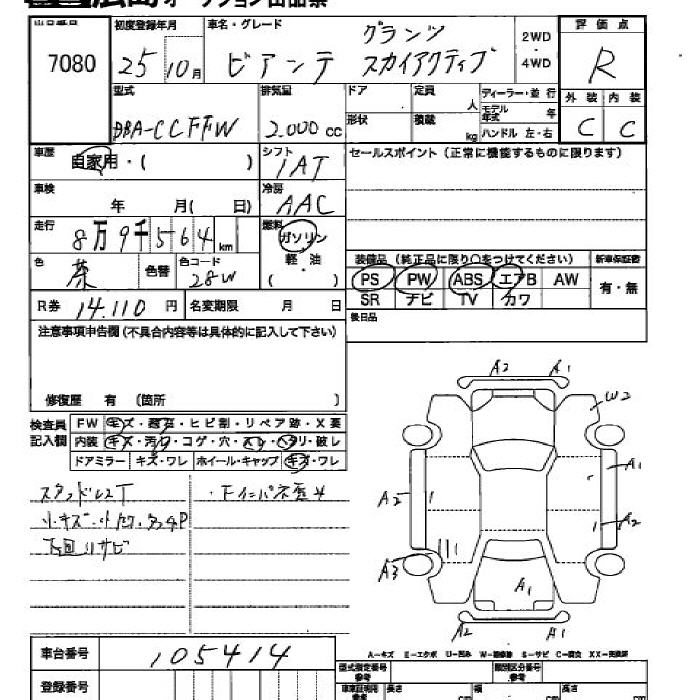 広島オークション出品票
出品番号 初度登録年月 車名・グレード 2WD・4WD 評価点
7080 25年10月 ビアンテ グランツ スカイアクティブ R
型式 排気量 ドア 定員 人 ディーラー・並行 外装 内装
DBA-CCFFW 2,000cc 形状 積載 kg モデル年式 年 ハンドル 左・右 C C
車歴 自家用・( ) シフト 1AT セールスポイント(正常に機能するものに限ります)
車検 年 月( 日) 冷房 AAC
走行 8万9千564km 燃料 ガソリン
軽・油
( )
色 茶 色替 色コード 28W
装備品(純正品に限り○をつけてください) 新車保証書
PS PW ABS エアB AW 有・無
SR ナビ TV カワ
R券 14,110円 名変期限 月 日 後日品
注意事項申告欄(不具合内容等は具体的に記入して下さい)
修復歴 有(箇所 )
検査員記入欄 FW キズ・ヒビ割・リペア跡・X要
内装 キズ・汚れ・コゲ・穴・スレ・ヘタリ・破レ
ドアミラー キズ・ワレ ホイール・キャップ キズ・ワレ
スタッドレスT
小キズ・小凹・タッチP
下回りサビ
A2 A1
W2
A1
A2 A2
A3
A1
A2 A1
A-キズ E-エクボ U-凹み W-補修跡 S-サビ C-腐食 XX-交換済
車台番号 105414
登録番号
型式指定番号 類別区分番号
車庫証明用参考 長さ cm 幅 cm 高さ cm